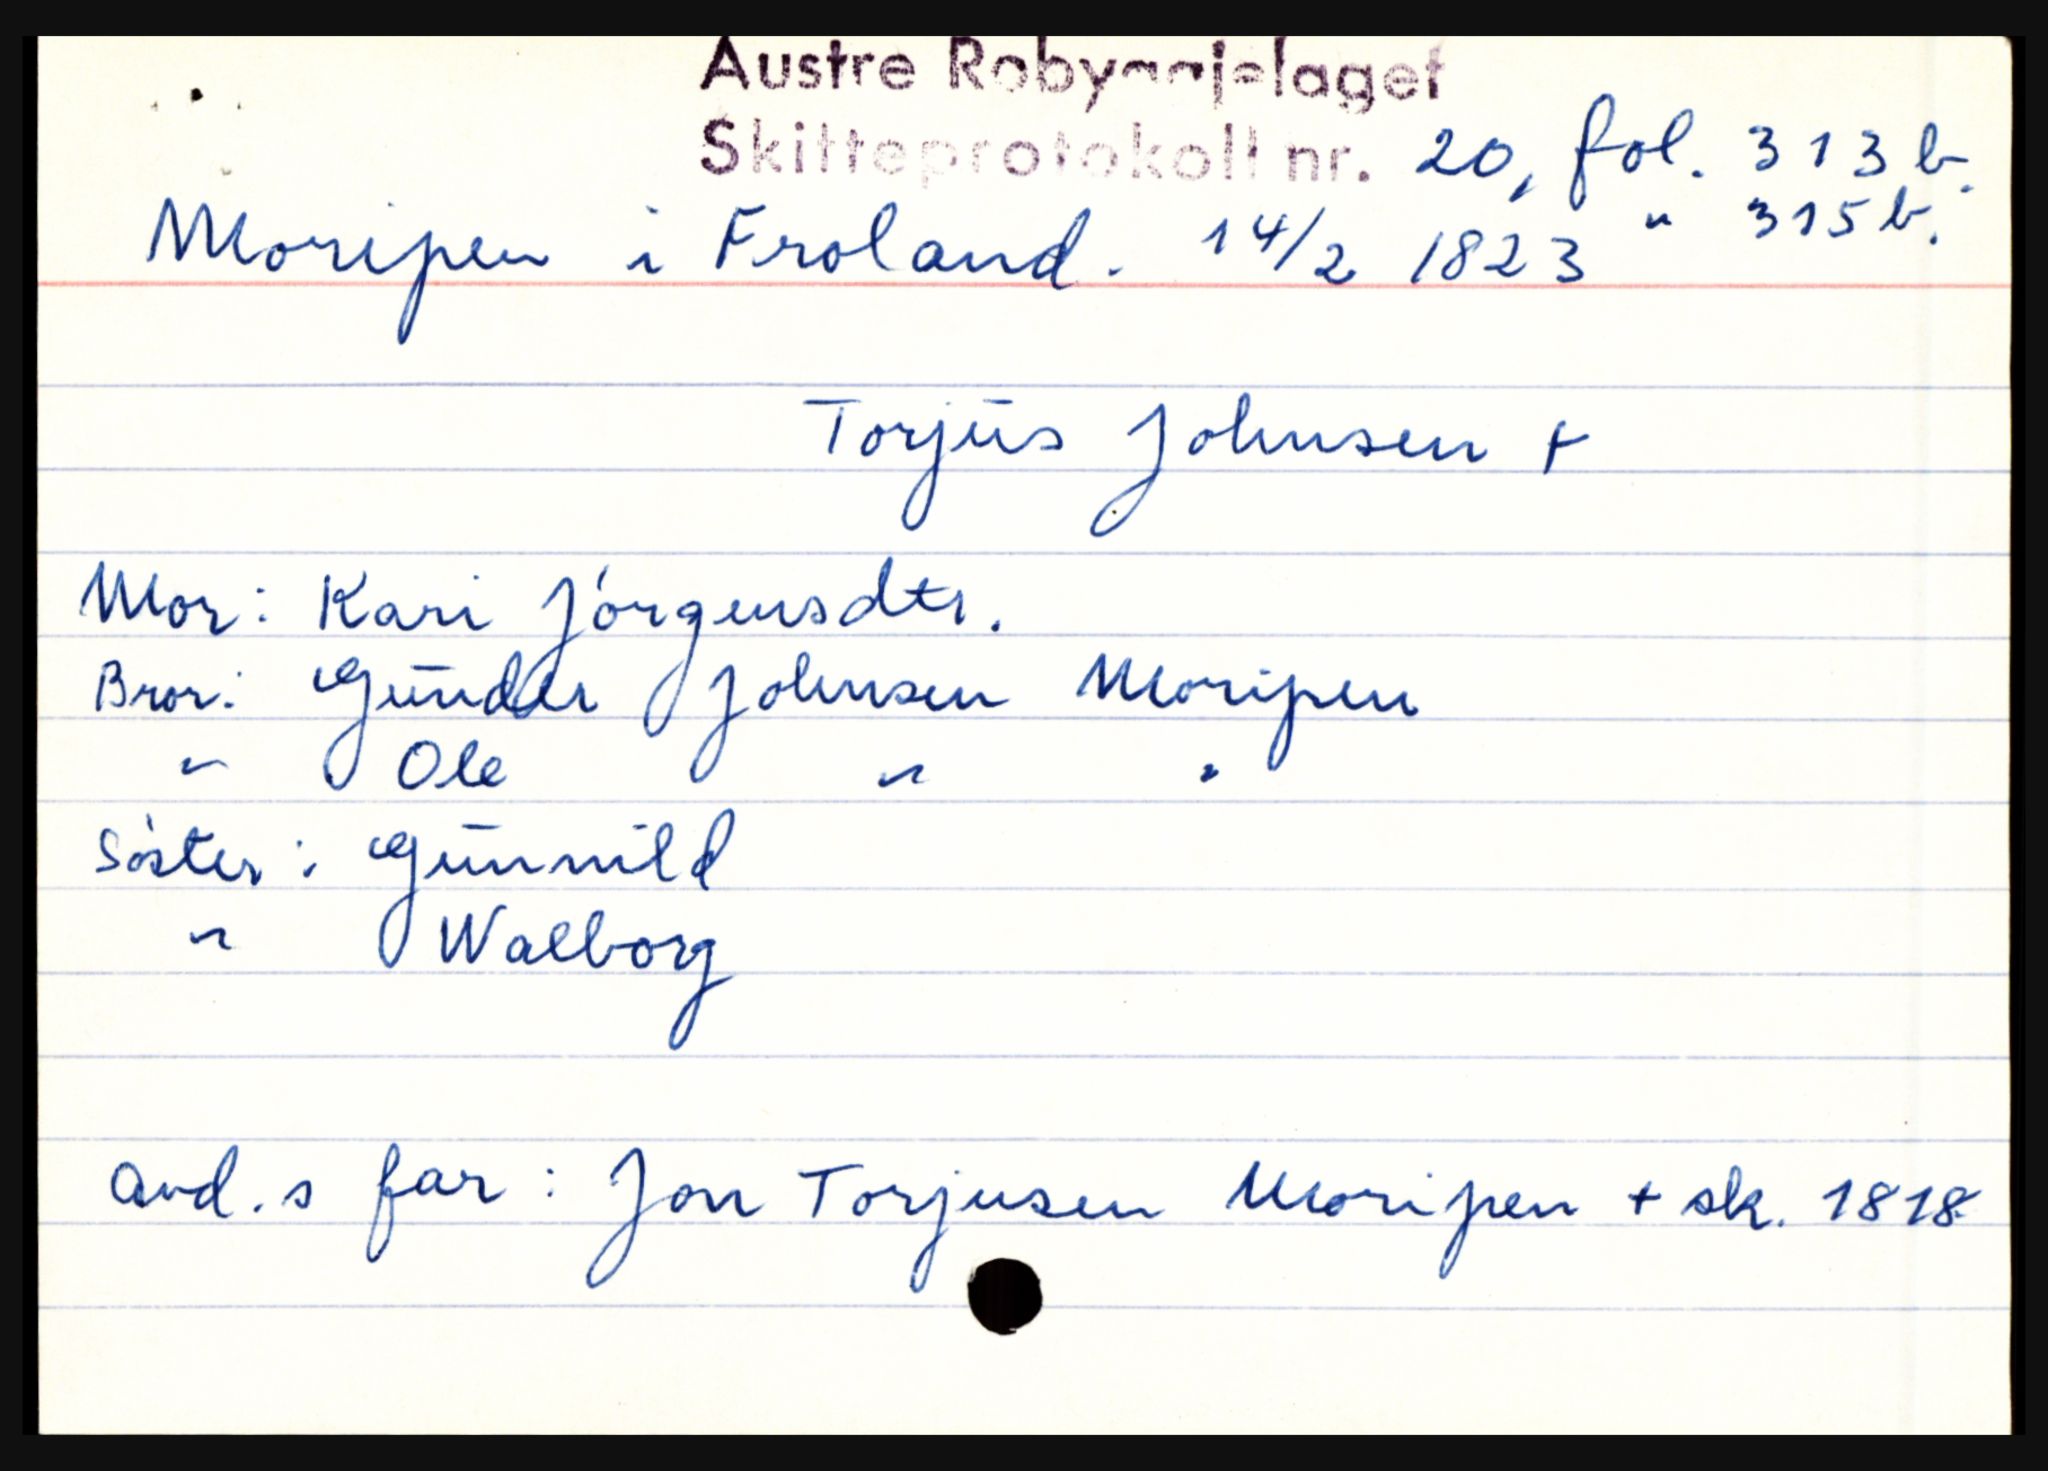 Austre Robyggjelaget
Skifteprotokoll nr. 20, fol. 313b.
Moripen i Froland. 14/2 1823 " 315b.
Torjus Johnsen +
Mor: Kari Jörgensdtr.
Bror: Gunder Johnsen Moripen
" Ole " "
Söster: Gunnild
" Walborg
avd.s far: Jon Torjusen Moripen + sk. 1818